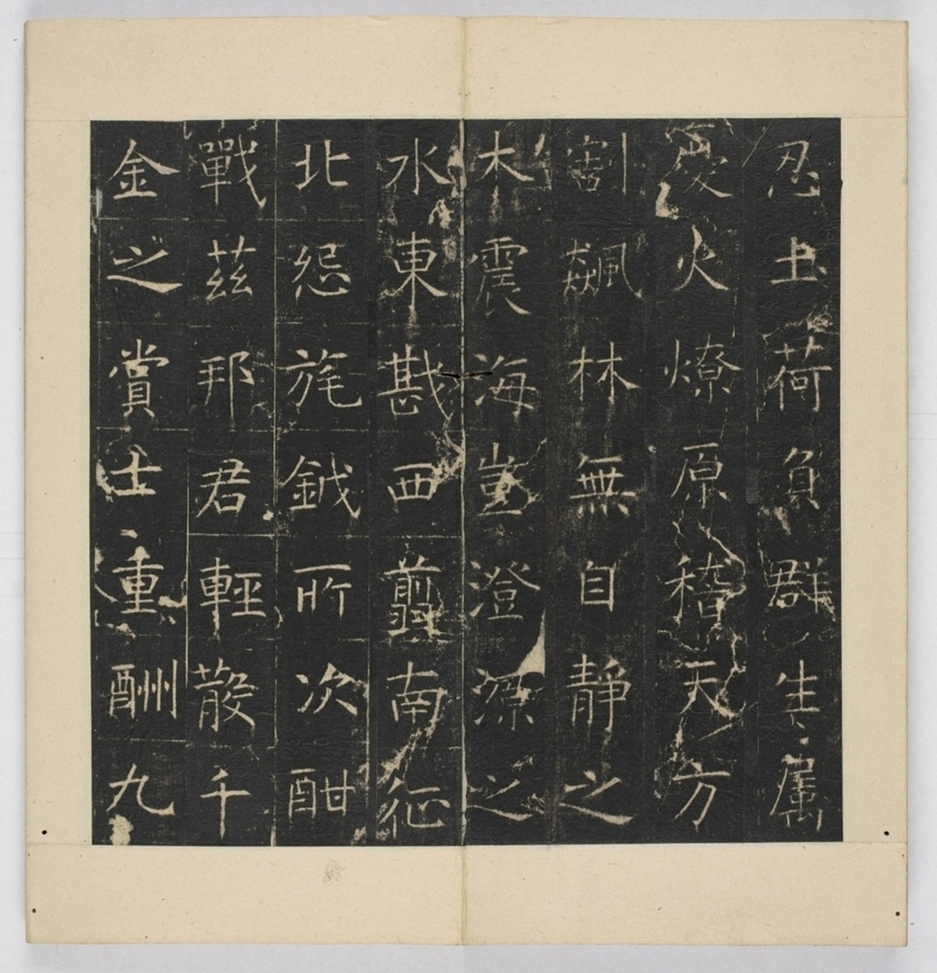 忍土荷負群生屬
火燎原稽天方
割飆林無自靜之
木震海豈澄源之
水東戡西翦南征
北怨旄鉞所次酣
戰茲邦君輕散千
金之賞士重酬九